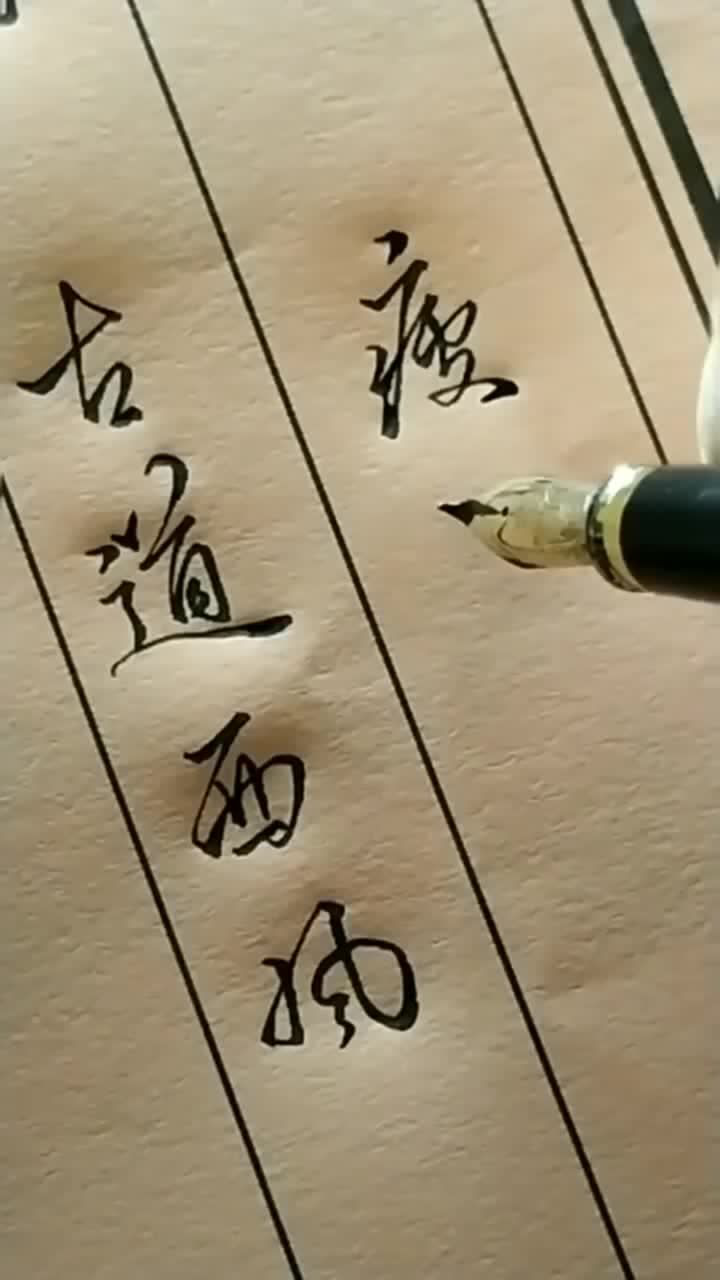 古道西風
瘦